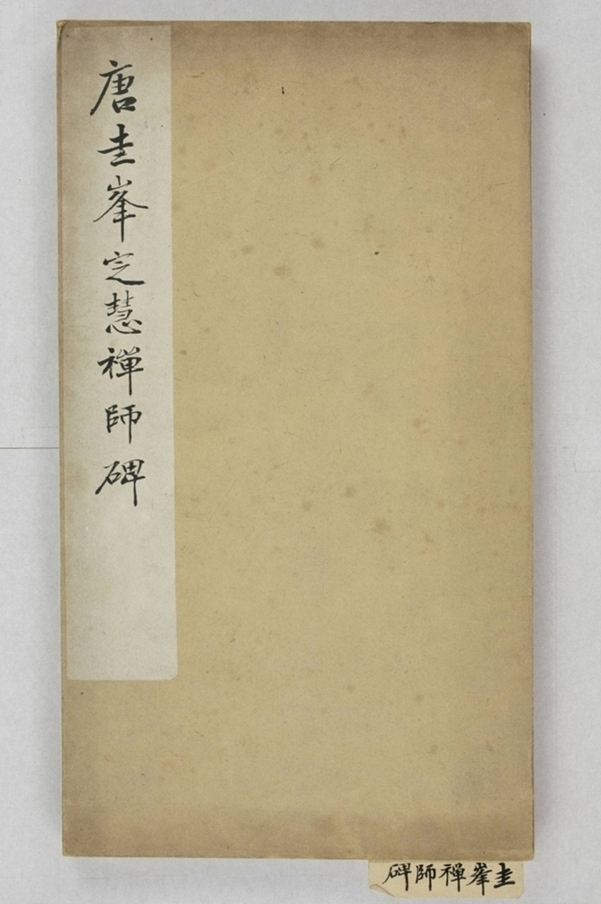 唐圭峯定慧禅師碑
圭峯禅師碑